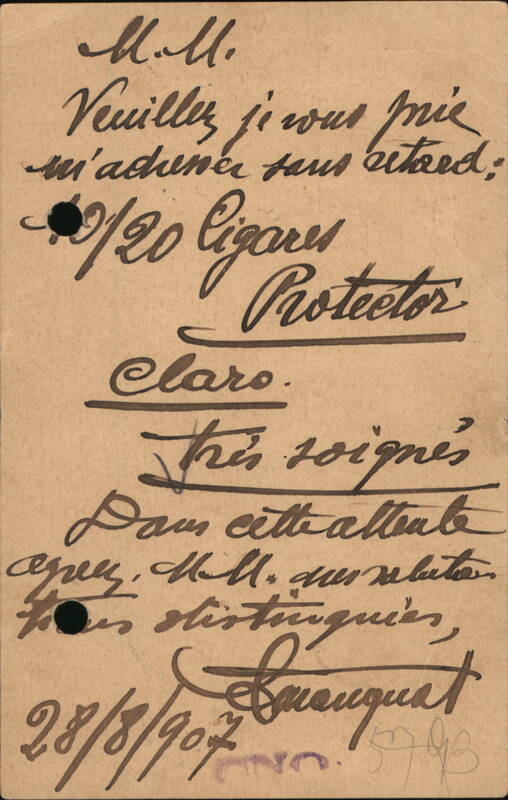 M. M.
Veuillez je vous prie
m'adresser sans retard:
10/20 Cigares
Protector
Claro.
très soignés
Dans cette attente
agréez, M.M. mes saluta
tions distinguées,
28/8/907